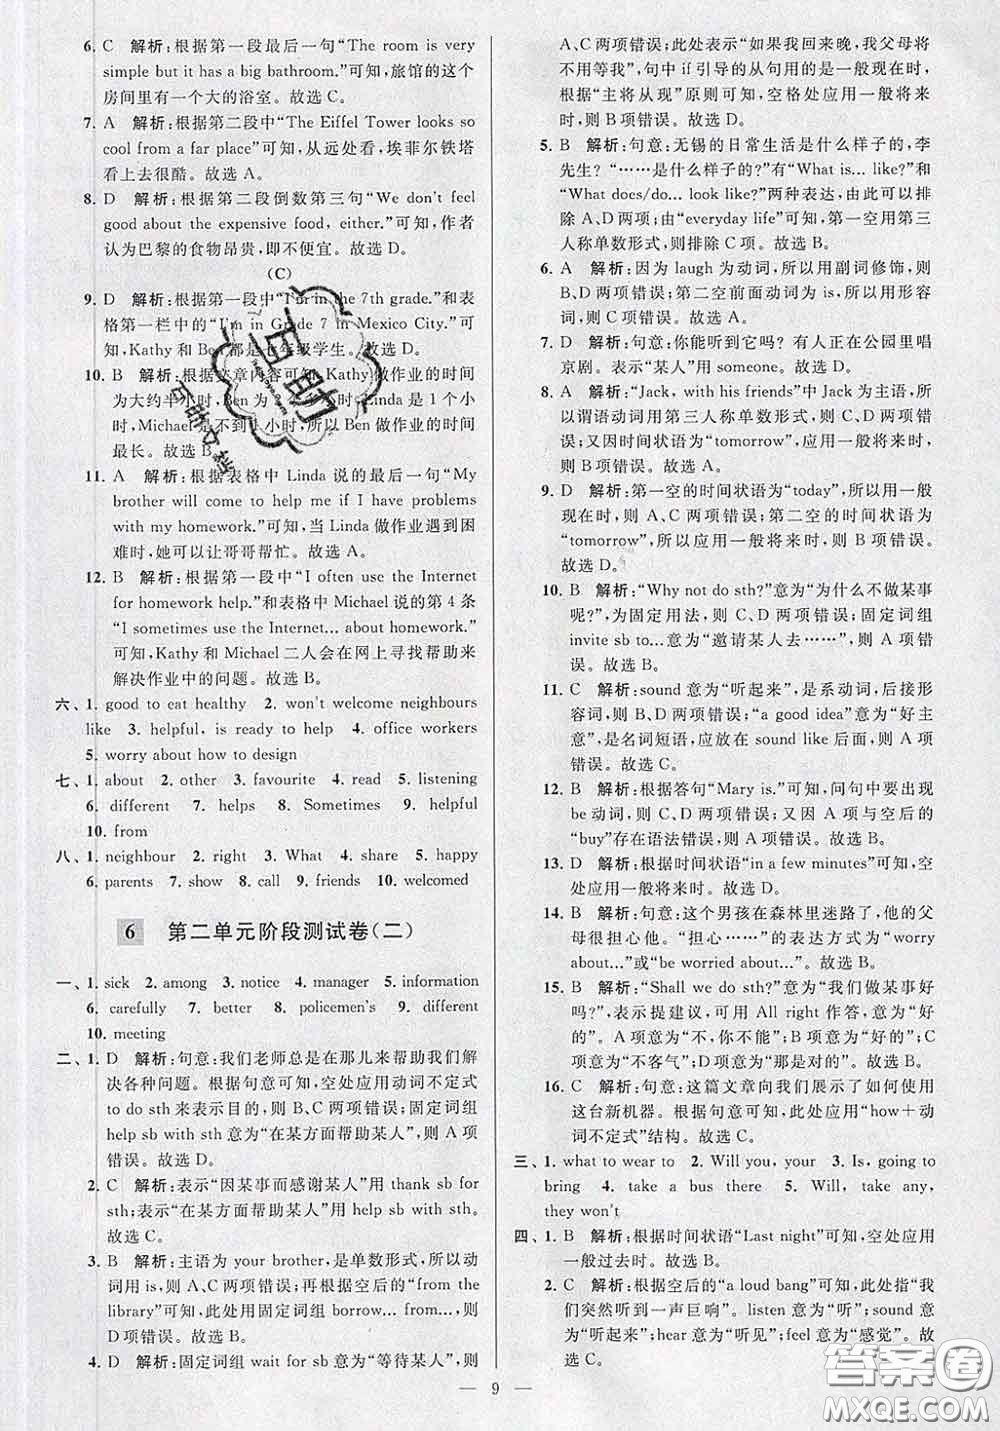 6. C 解析:根据第一段最后一句“The room is very
simple but it has a big bathroom.”可知,旅馆的这个
房间里有一个大的浴室。故选 C。
7. A 解析:根据第二段中“The Eiffel Tower looks so
cool from a far place”可知,从远处看,埃菲尔铁塔
看上去很酷。故选 A。
8. D 解析:根据第二段倒数第三句“We don't feel
good about the expensive food, either.”可知,作者
认为巴黎的食物昂贵,即不便宜。故选 D。
(C)
9. D 解析:根据第一段中“I'm in the 7th grade.”和表
格第一栏中的“I'm in Grade 7 in Mexico City.”可
知,Kathy 和 Ben 都是七年级学生。故选 D。
10. B 解析:根据文章内容可知,Kathy 做作业的时间
为大约半小时,Ben 为 2 个小时,Linda 是 1 个小
时,Michael 是不到 1 小时,所以 Ben 做作业的时间
最长。故选 B。
11. A 解析:根据表格中 Linda 说的最后一句“My
brother will come to help me if I have problems
with my homework.”可知,当 Linda 做作业遇到困
难时,她可以让哥哥帮忙。故选 A。
12. B 解析:根据第一段中“I often use the Internet
for homework help.”和表格中 Michael 说的第 4 条
“I sometimes use the Internet... about homework.”
可知,Kathy 和 Michael 二人会在网上寻找帮助来
解决作业中的问题。故选 B。
六、1. good to eat healthy 2. won't welcome neighbours
like 3. helpful, is ready to help 4. office workers
5. worry about how to design
七、1. about 2. other 3. favourite 4. read 5. listening
6. different 7. helps 8. Sometimes 9. helpful
10. from
八、1. neighbour 2. right 3. What 4. share 5. happy
6. parents 7. show 8. call 9. friends 10. welcomed
6 第二单元阶段测试卷(二)
一、1. sick 2. among 3. notice 4. manager 5. information
6. carefully 7. better 8. policemen's 9. different
10. meeting
二、1. D 解析:句意:我们老师总是在那儿来帮助我们解
决各种问题。根据句意可知,空处应用动词不定式
to do sth 来表示目的,则 B、C 两项错误;固定词组
help sb with sth 意为“在某方面帮助某人”,则 A 项
错误。故选 D。
2. C 解析:表示“因某事而感谢某人”用 thank sb for
sth;表示“在某方面帮助某人”用 help sb with sth。
故选 C。
3. B 解析:主语为 your brother,是单数形式,所以动
词用 is,则 A、C 两项错误;再根据空后的“from the
library”可知,此处用固定词组 borrow... from...,则
D 项错误。故选 B。
4. D 解析:固定词组 wait for sb 意为“等待某人”,则
A、C 两项错误;此处表示“如果我回来晚,我父母将
不用等我”,句中 if 引导的从句用的是一般现在时,
根据“主将从现”原则可知,空格处应用一般将来
时,则 B 项错误。故选 D。
5. B 解析:句意:无锡的日常生活是什么样子的,李
先生?“……是什么样子的?”有“What is... like?”和
“What does/do... look like?”两种表达,由此可以排
除 A、D 两项;由“everyday life”可知,第一空用第三
人称单数形式,则排除 C 项。故选 B。
6. A 解析:因为 laugh 为动词,所以用副词修饰,则
B、D 两项错误;第二空前面动词为 is,所以用形容
词,则 C 项错误。故选 A。
7. D 解析:句意:你能听到它吗?有人正在公园里唱
京剧。表示“某人”用 someone。故选 D。
8. A 解析:“Jack, with his friends”中 Jack 为主语,所
以谓语动词用第三人称单数形式,则 C、D 两项错
误;又因时间状语为“tomorrow”,应用一般将来时,
则 B 项错误。故选 A。
9. D 解析:第一空的时间状语为“today”,所以用一
般现在时,则 A、C 两项错误;第二空的时间状语为
“tomorrow”,所以应用一般将来时,则 B 项错误。
故选 D。
10. B 解析:“Why not do sth?”意为“为什么不做某事
呢?”,为固定用法,则 C、D 两项错误;固定词组
invite sb to...意为“邀请某人去……”,则 A 项错
误。故选 B。
11. C 解析:sound 意为“听起来”,是系动词,后接形
容词,则 B、D 两项错误;“a good idea”意为“好主
意”,是名词短语,应放在 sound like 后面,则 A 项
错误。故选 C。
12. B 解析:根据答句“Mary is.”可知,问句中要出现
be 动词,则 C、D 两项错误;又因 A 项与空后的
“buy”存在语法错误,则 A 项错误。故选 B。
13. D 解析:根据时间状语“in a few minutes”可知,空
处应用一般将来时。故选 D。
14. B 解析:句意:这个男孩在森林里迷路了,他的父
母很担心他。“担心……”的表达方式为“worry
about...”或“be worried about...”。故选 B。
15. B 解析:“Shall we do sth?”意为“我们做某事好
吗?”,表示提建议,可用 All right 作答,意为“好
的”。A 项意为“不,你不能”;B 项意为“好的”;C
项意为“不客气”;D 项意为“那是对的”。故选 B。
16. C 解析:句意:这篇文章向我们展示了如何使用
这台新机器。根据句意可知,此处应用“how+动
词不定式”结构。故选 C。
三、1. what to wear to 2. Will you, your 3. Is, going to
bring 4. take a bus there 5. Will, take any,
they won't
四、1. B 解析:根据时间状语“Last night”可知,空处应用
一般过去时。故选 B。
2. C 解析:根据空后的“a loud bang”可知,此处指“我
们突然听到一声巨响”。listen 意为“听”;sound 意
为“听起来”;hear 意为“听见”;feel 意为“感觉”。故
选 C。
— 9 —
互助
互助文档
答案圈
MXQE.COM